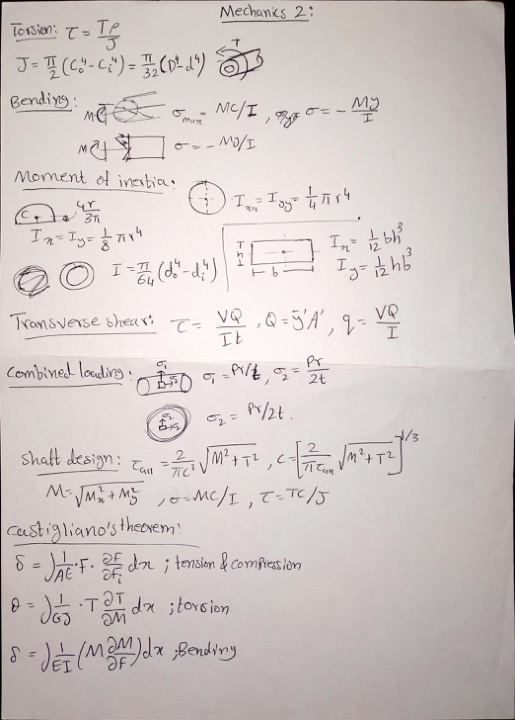 Mechanics 2:
Torsion: τ = Tρ/J
J = π/2 (C₀⁴ - Cᵢ⁴) = π/32 (D⁴ - d⁴)
T
Bending: M σmax = MC/I, σ = - My/I
M σ = - My/I
Moment of inertia:
Ixx = Iyy = 1/4 π r⁴
C 4r/3π
Ix = Iy = 1/8 π r⁴
h b Ix = 1/12 bh³
Iy = 1/12 hb³
I = π/64 (d₀⁴ - dᵢ⁴)
Transverse shear: τ = VQ/It, Q = ȳ'A', q = VQ/I
Combined loading: σ₁ σ₂ σ₁ = Pr/t, σ₂ = Pr/2t
σ₂ σ₂ = Pr/2t.
Shaft design: τall = 2/πc³ √M²+T², C = [2/πτall √M²+T²]^1/3
M = √Mx²+My², σ = MC/I, τ = TC/J
Castigliano's theorem:
δ = ∫ 1/AE · F · ∂F/∂Fᵢ dx ; tension & compression
θ = ∫ 1/GJ · T ∂T/∂M dx ; torsion
δ = ∫ 1/EI (M ∂M/∂F) dx ; Bending